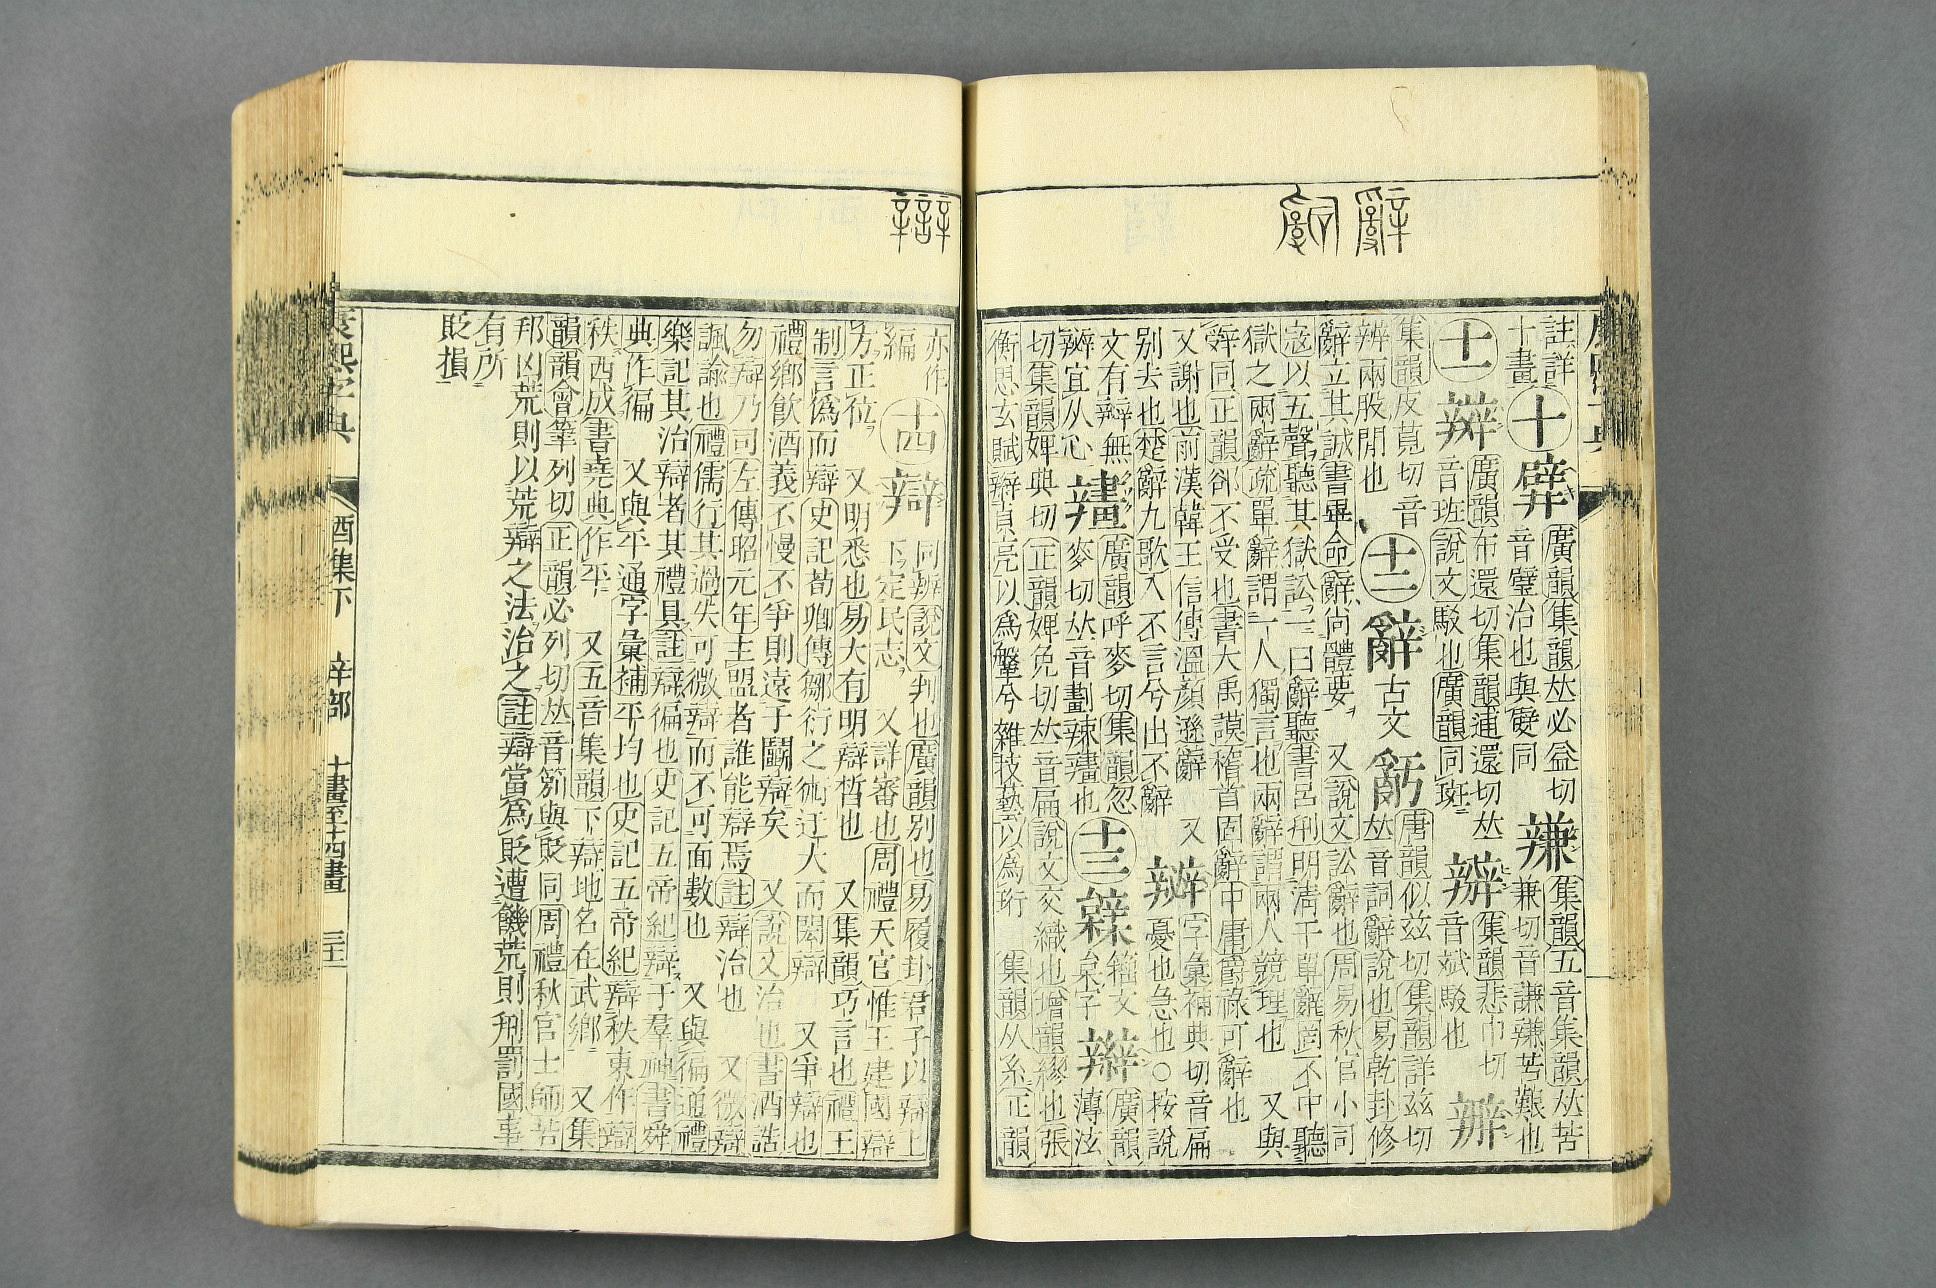 辭
註詳
十畫
十
廣韻集韻𠀤必益切
音璧治也與嬖同
集韻五音集韻𠀤苦
兼切音謙𨐩苦艱也
十一
辬
廣韻布還切集韻逋還切𠀤
音班說文駁也廣韻同斑
辬
集韻悲巾切
音斌駁也
辦
集韻皮莧切音
辨兩股閒也
十二
辭
古文
唐韻似兹切集韻詳兹切
𠀤音詞辭說也易乾卦修
辭立其誠書畢命辭尚體要 又說文訟辭也周易秋官小司
寇以五聲聽其獄訟一曰辭聽書呂刑明清于單辭罔不中聽
獄之兩辭疏單辭謂一人獨言也兩辭謂兩人競理也 又與
辤同正韻郤不受也書大禹謨稽首固辭中庸爵祿可辭也
又謝也前漢韓王信傳溫顏遜辭 又
別去也楚辭九歌入不言兮出不辭
字彙補典切音扁
憂也急也○按說
文有辡無
宜从心
廣韻呼麥切集韻忽
麥切𠀤音劃辣𨐾也
十三
籀文
辠字
辮
廣韻
薄泫
切集韻婢典切正韻婢免切𠀤音扁說文交織也增韻繆也張
衡思玄賦辮貞亮以爲鞶兮雜技藝以爲珩 集韻从糸正韻
辯
亦作
編
十四
辯
同辨說文判也廣韻別也易履卦君子以辯上
下定民志 又詳審也周禮天官惟王建國辯
方正位 又明悉也易大有明辯晳也 又集韻巧言也禮王
制言僞而辯史記荀卿傳鄒衍之術迂大而閎辯 又爭辯也
禮鄉飮酒義不慢不爭則遠于鬭辯矣 又說文治也書酒誥
勿辯乃司左傳昭元年主盟者誰能辯焉註辯治也 又微辯
諷諭也禮儒行其過失可微辯而不可面數也 又與徧通禮
樂記其治辯者其禮具註辯徧也史記五帝紀辯于羣神書舜
典作徧 又與平通字彙補平均也史記五帝紀辯秩東作辯
秩西成書堯典作平 又五音集韻下辯地名在武鄉 又集
韻韻會筆列切正韻必列切𠀤音䇷與貶同周禮秋官士師若
邦凶荒則以荒辯之法治之註辯當爲貶遭饑荒則刑罰國事
有所
貶損
康熙字典 酉集下 辛部 十畫至十四畫